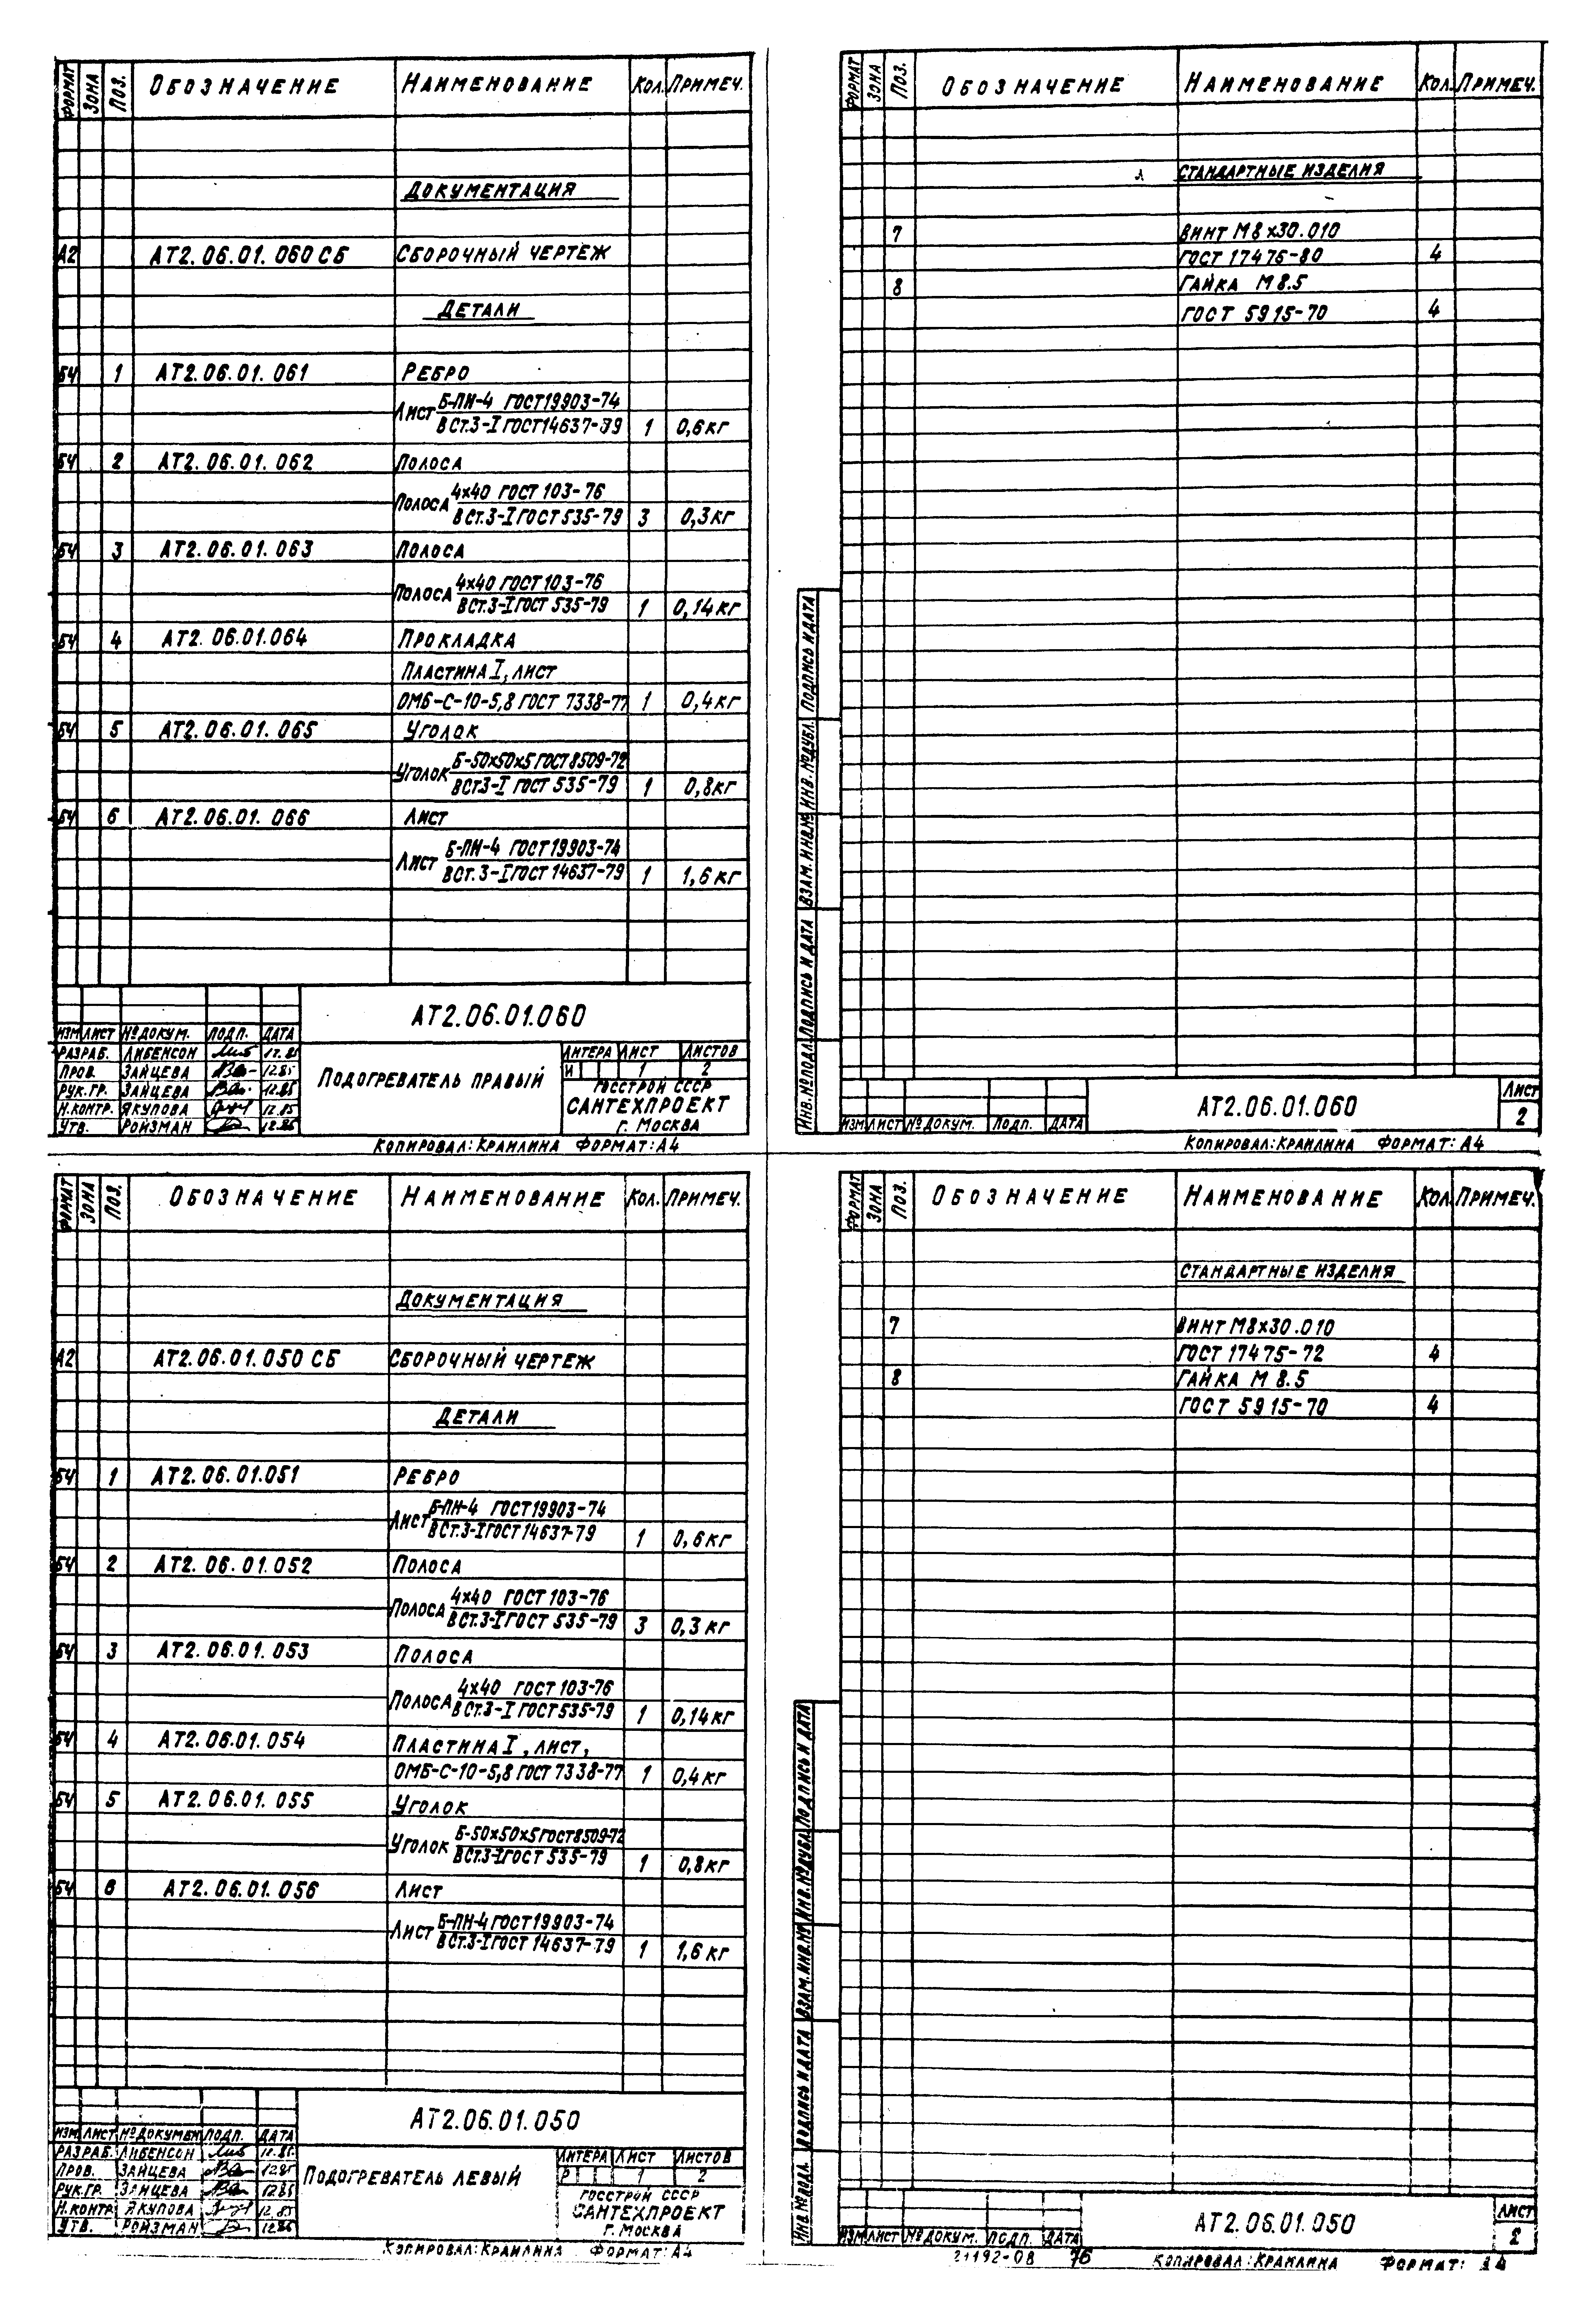 ФОРМАТ ЗОНА ПОЗ. ОБОЗНАЧЕНИЕ НАИМЕНОВАНИЕ КОЛ. ПРИМЕЧ.
ДОКУМЕНТАЦИЯ
А2 АТ2.06.01.060 СБ СБОРОЧНЫЙ ЧЕРТЕЖ
ДЕТАЛИ
БЧ 1 АТ2.06.01.061 РЕБРО
ЛИСТ Б-ПН-4 ГОСТ 19903-74
ВСт.3-I ГОСТ 14637-79 1 0,6 кг
БЧ 2 АТ2.06.01.062 ПОЛОСА
ПОЛОСА 4х40 ГОСТ 103-76
ВСт.3-I ГОСТ 535-79 3 0,3 кг
БЧ 3 АТ2.06.01.063 ПОЛОСА
ПОЛОСА 4х40 ГОСТ 103-76
ВСт.3-I ГОСТ 535-79 1 0,14 кг
БЧ 4 АТ2.06.01.064 ПРОКЛАДКА
ПЛАСТИНА I, ЛИСТ
ОМБ-С-10-5,8 ГОСТ 7338-77 1 0,4 кг
БЧ 5 АТ2.06.01.065 УГОЛОК
УГОЛОК Б-50х50х5 ГОСТ 8509-72
ВСт.3-I ГОСТ 535-79 1 0,8 кг
БЧ 6 АТ2.06.01.066 ЛИСТ
ЛИСТ Б-ПН-4 ГОСТ 19903-74
ВСт.3-I ГОСТ 14637-79 1 1,6 кг
АТ2.06.01.060
ИЗМ ЛИСТ № ДОКУМ. ПОДП. ДАТА
РАЗРАБ. ЛИБЕНСОН 12.85
ПРОВ. ЗАЙЦЕВА 12.85
РУК.ГР. ЗАЙЦЕВА 12.85
Н.КОНТР. ЯКУПОВА 12.85
УТВ. РОЙЗМАН 12.85
ПОДОГРЕВАТЕЛЬ ПРАВЫЙ
ЛИТЕРА ЛИСТ ЛИСТОВ
И 1 2
ГОССТРОЙ СССР
САНТЕХПРОЕКТ
Г. МОСКВА
КОПИРОВАЛ: КРАИЛИНА ФОРМАТ: А4
ФОРМАТ ЗОНА ПОЗ. ОБОЗНАЧЕНИЕ НАИМЕНОВАНИЕ КОЛ. ПРИМЕЧ.
СТАНДАРТНЫЕ ИЗДЕЛИЯ
7 ВИНТ М8х30.010
ГОСТ 17475-80 4
8 ГАЙКА М8.5
ГОСТ 5915-70 4
ИНВ. № ПОДЛ. ПОДПИСЬ И ДАТА ВЗАМ. ИНВ. № ИНВ. № ДУБЛ. ПОДПИСЬ И ДАТА
ИЗМ ЛИСТ № ДОКУМ. ПОДП. ДАТА
АТ2.06.01.060
ЛИСТ
2
КОПИРОВАЛ: КРАИЛИНА ФОРМАТ: А4
ФОРМАТ ЗОНА ПОЗ. ОБОЗНАЧЕНИЕ НАИМЕНОВАНИЕ КОЛ. ПРИМЕЧ.
ДОКУМЕНТАЦИЯ
А2 АТ2.06.01.050 СБ СБОРОЧНЫЙ ЧЕРТЕЖ
ДЕТАЛИ
БЧ 1 АТ2.06.01.051 РЕБРО
ЛИСТ Б-ПН-4 ГОСТ 19903-74
ВСт.3-I ГОСТ 14637-79 1 0,6 кг
БЧ 2 АТ2.06.01.052 ПОЛОСА
ПОЛОСА 4х40 ГОСТ 103-76
ВСт.3-I ГОСТ 535-79 3 0,3 кг
БЧ 3 АТ2.06.01.053 ПОЛОСА
ПОЛОСА 4х40 ГОСТ 103-76
ВСт.3-I ГОСТ 535-79 1 0,14 кг
БЧ 4 АТ2.06.01.054 ПЛАСТИНА I, ЛИСТ,
ОМБ-С-10-5,8 ГОСТ 7338-77 1 0,4 кг
БЧ 5 АТ2.06.01.055 УГОЛОК
УГОЛОК Б-50х50х5 ГОСТ 8509-72
ВСт.3-I ГОСТ 535-79 1 0,8 кг
БЧ 6 АТ2.06.01.056 ЛИСТ
ЛИСТ Б-ПН-4 ГОСТ 19903-74
ВСт.3-I ГОСТ 14637-79 1 1,6 кг
АТ2.06.01.050
ИЗМ ЛИСТ № ДОКУМЕН ПОДП. ДАТА
РАЗРАБ. ЛИБЕНСОН 12.85
ПРОВ. ЗАЙЦЕВА 12.85
РУК.ГР. ЗАЙЦЕВА 12.85
Н.КОНТР ЯКУПОВА 12.85
УТВ. РОЙЗМАН 12.85
ПОДОГРЕВАТЕЛЬ ЛЕВЫЙ
ЛИТЕРА ЛИСТ ЛИСТОВ
Р 1 2
ГОССТРОЙ СССР
САНТЕХПРОЕКТ
Г. МОСКВА
КОПИРОВАЛ: КРАИЛИНА ФОРМАТ: А4
ФОРМАТ ЗОНА ПОЗ. ОБОЗНАЧЕНИЕ НАИМЕНОВАНИЕ КОЛ. ПРИМЕЧ.
СТАНДАРТНЫЕ ИЗДЕЛИЯ
7 ВИНТ М8х30.010
ГОСТ 17475-72 4
8 ГАЙКА М8.5
ГОСТ 5915-70 4
ИНВ. № ПОДЛ. ПОДПИСЬ И ДАТА ВЗАМ. ИНВ. № ИНВ. № ДУБЛ. ПОДПИСЬ И ДАТА
ИЗМ ЛИСТ № ДОКУМ. ПОДП. ДАТА
АТ2.06.01.050
ЛИСТ
2
21192-08 76
КОПИРОВАЛ: КРАИЛИНА ФОРМАТ: А4